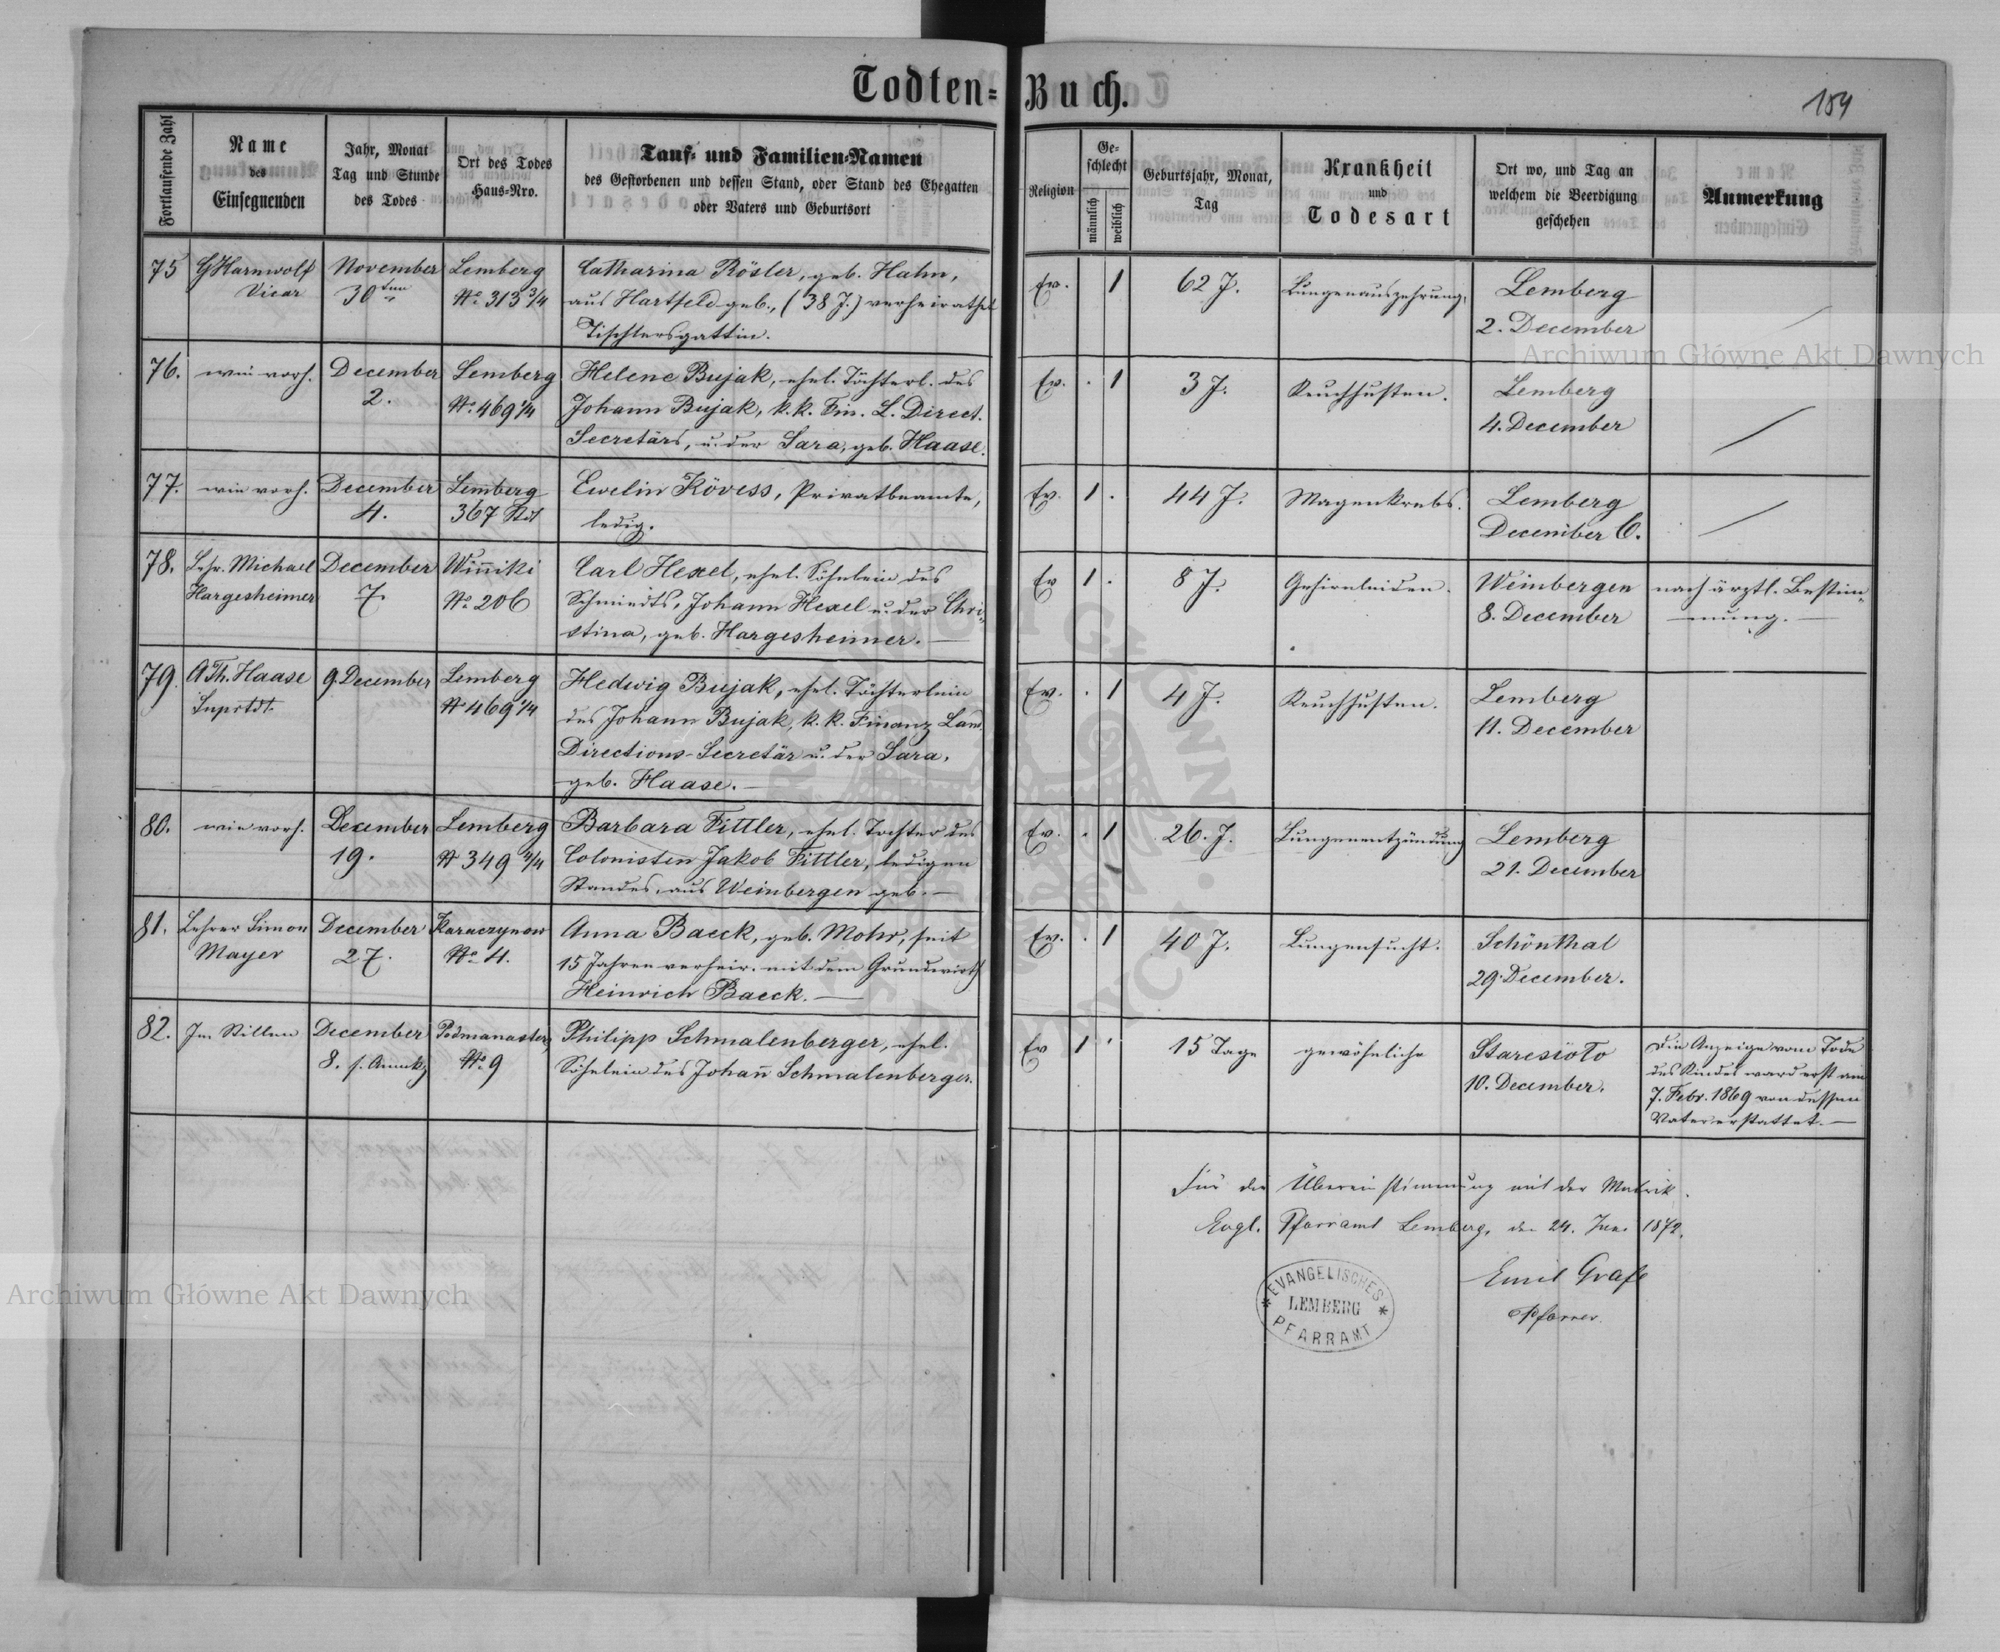 Todten-Buch.
154
Fortlaufende Zahl
Name
des
Einsegnenden
Jahr, Monat
Tag und Stunde
des Todes
Ort des Todes
Haus-Nro.
Tauf- und Familien-Namen
des Gestorbenen und dessen Stand, oder Stand des Ehegatten
oder Vaters und Geburtsort
Religion
Ge-
schlecht
männlich
weiblich
Geburtsjahr, Monat,
Tag
Krankheit
und
Todesart
Ort wo, und Tag an
welchem die Beerdigung
geschehen
Anmerkung
75
Harnwolf
Vicar
November
30
Lemberg
No. 313 3/4
Catharina Rösler, geb. Hahn,
aus Hartfeld geb., (38 J.) verheirathet
Tischlersgattin.
Ev.
1
62 J.
Lungenauszehrung.
Lemberg
2. December
76.
wie vorh.
December
2.
Lemberg
No. 469 1/4
Helene Bujak, ehel. Töchterl. des
Johann Bujak, k. k. Fin. L. Direct.
Secretärs, u. der Sara, geb. Haase.
Ev. . 1
3 J.
Keuchhusten.
Lemberg
4. December
77.
wie vorh.
December
4.
Lemberg
367 Stdt
Ewelin Kövess, Privatbeamte,
ledig.
Ev. 1 .
44 J.
Magenkrebs.
Lemberg
December 6.
78.
Lehr. Michael
Hargesheimer
December
7.
Winniki
No. 206
Carl Hexel, ehel. Söhnlein des
Schmiedts, Johann Hexel u. der Chri-
stina, geb. Hargesheimer.
Ev 1 .
8 J.
Gehirnleiden.
Weinbergen
8. December
nach ärztl. Bestim-
mung.
79.
A Th. Haase
Suprtdt.
9. December
Lemberg
No 469 1/4
Hedwig Bujak, ehel. Töchterlein
des Johann Bujak, k. k. Finanz Land.
Directions-Secretär u. der Sara,
geb. Haase.
Ev. . 1
4 J.
Keuchhusten.
Lemberg
11. December
80.
wie vorh.
December
19.
Lemberg
No 349 4/4
Barbara Fittler, ehel. Tochter des
Colonisten Jakob Fittler, ledigen
Standes, aus Weinbergen geb.
Ev. . 1
26. J.
Lungenentzündung
Lemberg
21. December
81.
Lehrer Simon
Mayer
December
27.
Karaczynow
No. 4.
Anna Baeck, geb. Mohr, seit
15 Jahren verheir. mit dem Grundwirth
Heinrich Baeck.
Ev. . 1
40 J.
Lungensucht.
Schönthal
29. December.
82.
Im Stillen
December
8. s. Anmkg
Podmanasterz
No. 9
Philipp Schmalenberger, ehel.
Söhnlein des Johann Schmalenberger.
Ev 1 .
15 Tage
gewöhnliche
Staresioto
10. December.
Die Anzeige vom Tode
des Kindes ward erst am
7. Febr. 1869 von dessen
Vater erstattet.
Für die Übereinstimmung mit der Matrik.
Evgl. Pfarramt Lemberg, den 24. 1872.
Emil Grafe
Pfarrer.
EVANGELISCHES
LEMBERG
PFARRAMT
Archiwum Główne Akt Dawnych
Archiwum Główne Akt Dawnych